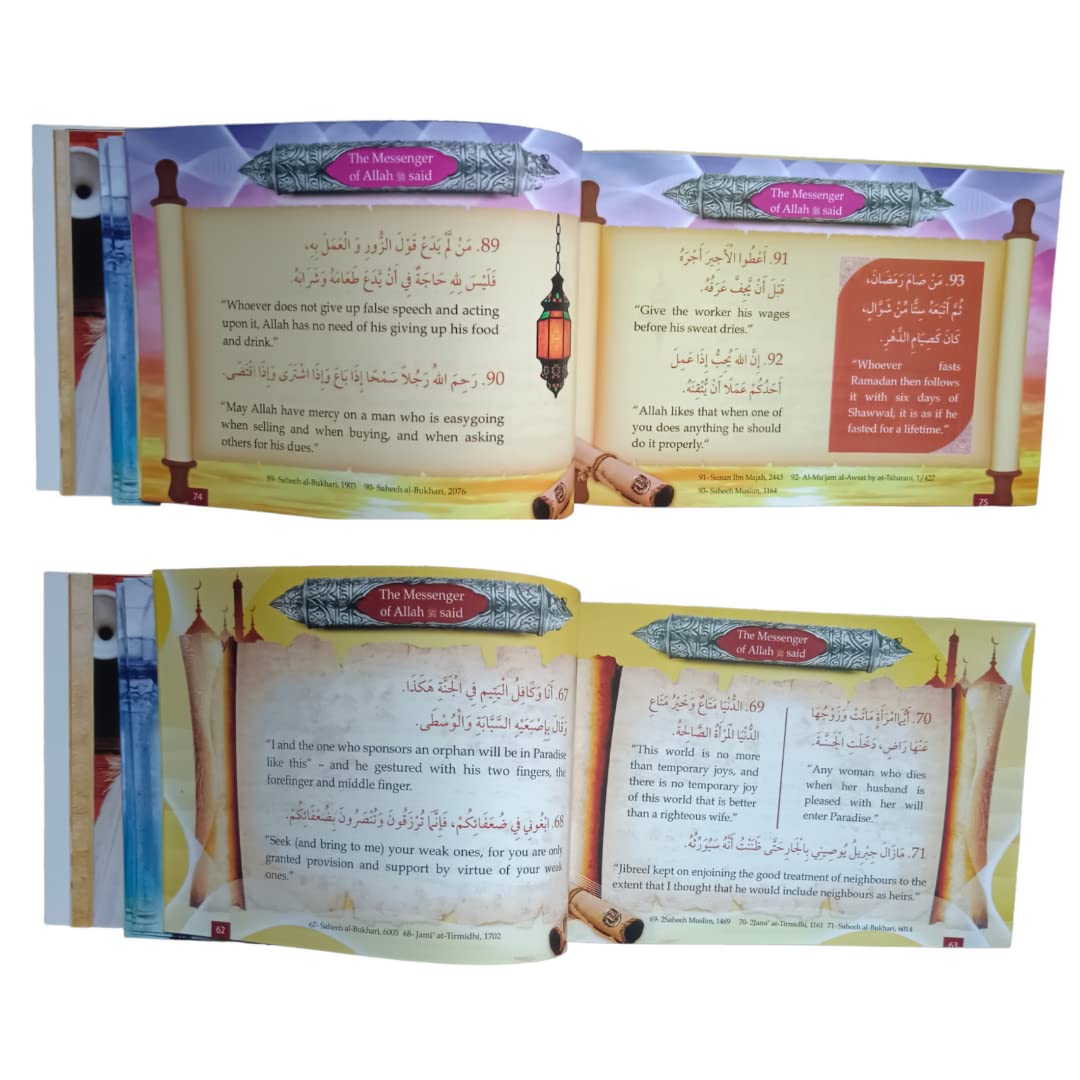 The Messenger
of Allah ﷺ said
89. مَنْ لَّمْ يَدَعْ قَوْلَ الزُّورِ وَ الْعَمَلَ بِهِ،
فَلَيْسَ لِلهِ حَاجَةٌ فِي أَنْ يَّدَعَ طَعَامَهُ وَشَرَابَهُ.
“Whoever does not give up false speech and acting
upon it, Allah has no need of his giving up his food
and drink.”
90. رَحِمَ اللهُ رَجُلاً سَمْحًا إِذَا بَاعَ وَإِذَا اشْتَرَى وَإِذَا اقْتَضَى.
“May Allah have mercy on a man who is easygoing
when selling and when buying, and when asking
others for his dues.”
89- Saheeh al-Bukhari, 1903 90- Saheeh al-Bukhari, 2076
74
The Messenger
of Allah ﷺ said
91. أَعْطُوا الْأَجِيرَ أَجْرَهُ
قَبْلَ أَنْ يَّجِفَّ عَرَقُهُ.
“Give the worker his wages
before his sweat dries.”
92. إِنَّ اللهَ يُحِبُّ إِذَا عَمِلَ
أَحَدُكُمْ عَمَلًا أَنْ يُّتْقِنَهُ.
“Allah likes that when one of
you does anything he should
do it properly.”
93. مَنْ صَامَ رَمَضَانَ،
ثُمَّ أَتْبَعَهُ سِتًّا مِّنْ شَوَّالٍ،
كَانَ كَصِيَامِ الدَّهْرِ.
“Whoever fasts
Ramadan then follows
it with six days of
Shawwal, it is as if he
fasted for a lifetime.”
91- Sunan Ibn Majah, 2443 92- Al-Mu'jam al-Awsat by at-Tabarani, 1/427
93- Saheeh Muslim, 1164
75
The Messenger
of Allah ﷺ said
67. أَنَا وَكَافِلُ الْيَتِيمِ فِي الْجَنَّةِ هَكَذَا.
وَقَالَ بِإِصْبَعَيْهِ السَّبَّابَةِ وَالْوُسْطَى.
“I and the one who sponsors an orphan will be in Paradise
like this” – and he gestured with his two fingers, the
forefinger and middle finger.
68. ابْغُونِي فِي ضُعَفَائِكُمْ، فَإِنَّمَا تُرْزَقُونَ وَتُنْصَرُونَ بِضُعَفَائِكُمْ.
“Seek (and bring to me) your weak ones, for you are only
granted provision and support by virtue of your weak
ones.”
67- Saheeh al-Bukhari, 6005 68- Jami' at-Tirmidhi, 1702
62
The Messenger
of Allah ﷺ said
69. الدُّنْيَا مَتَاعٌ وَخَيْرُ مَتَاعِ
الدُّنْيَا الْمَرْأَةُ الصَّالِحَةُ.
“This world is no more
than temporary joys, and
there is no temporary joy
of this world that is better
than a righteous wife.”
70. أَيُّمَا امْرَأَةٍ مَاتَتْ وَزَوْجُهَا
عَنْهَا رَاضٍ، دَخَلَتِ الْجَنَّةَ.
“Any woman who dies
when her husband is
pleased with her will
enter Paradise.”
71. مَازَالَ جِبْرِيلُ يُوصِينِي بِالْجَارِ حَتَّى ظَنَنْتُ أَنَّهُ سَيُوَرِّثُهُ.
“Jibreel kept on enjoining the good treatment of neighbours to the
extent that I thought that he would include neighbours as heirs.”
69- 2Saheeh Muslim, 1469 70- 2Jami' at-Tirmidhi, 1161 71- Saheeh al-Bukhari, 6014
63